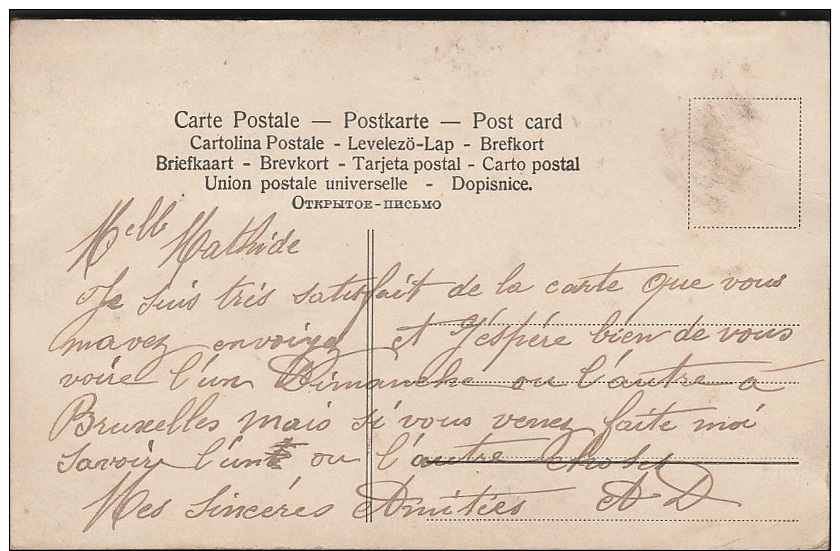 Carte Postale — Postkarte — Post card
Cartolina Postale - Levelező-Lap - Brefkort
Briefkaart - Brevkort - Tarjeta postal - Carto postal
Union postale universelle - Dopisnice.
Открытое-письмо
Melle Mathide
Je suis trés satisfait de la carte que vous
mavez envoiyé et J'éspére bien de vous
voire l'un Dimanche ou l'autre à
Bruxelles mais si vous venez faite moi
savoir l'un ou l'autre choses
Mes Sincéres Amitiées A D